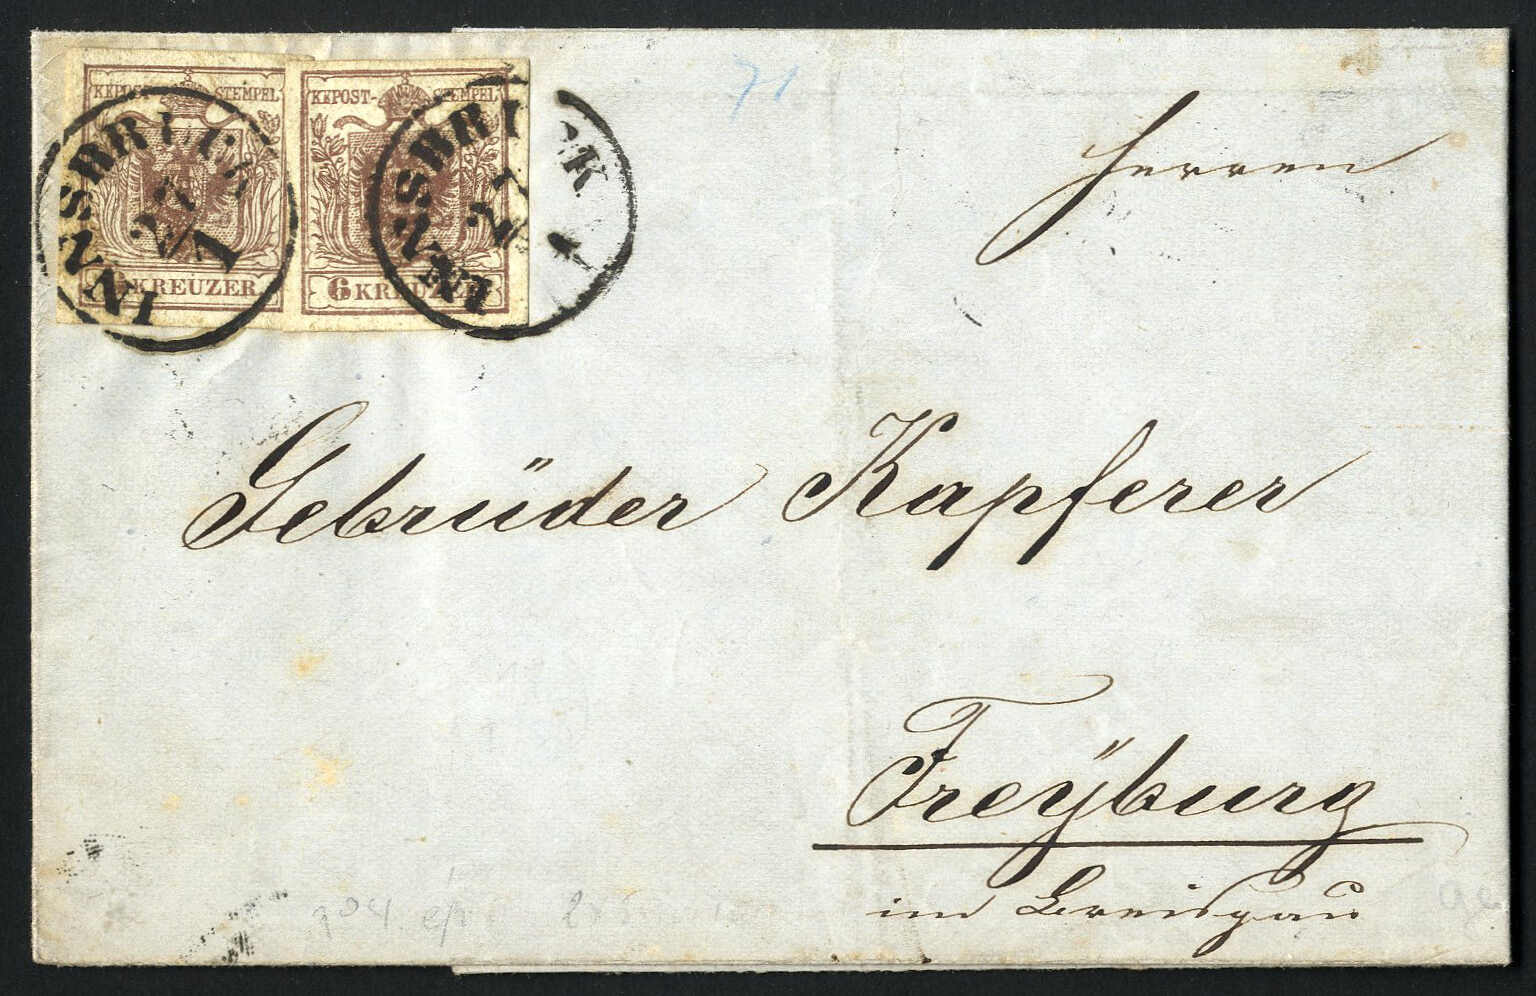 KKPOST-STEMPEL
KREUZER
KKPOST-STEMPEL
6 KREUZER
INNSBRUCK
27
1
INNSBRUCK
27
1
71
Herren
Gebrüder Kapferer
Freÿburg
im Breisgau